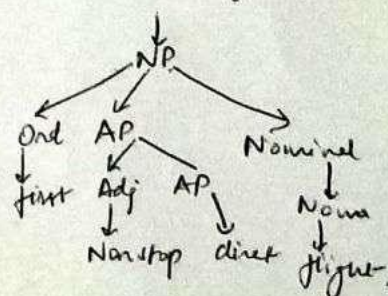 NP
Ord AP Nominal
first Adj AP Noun
Nonstop diret flight